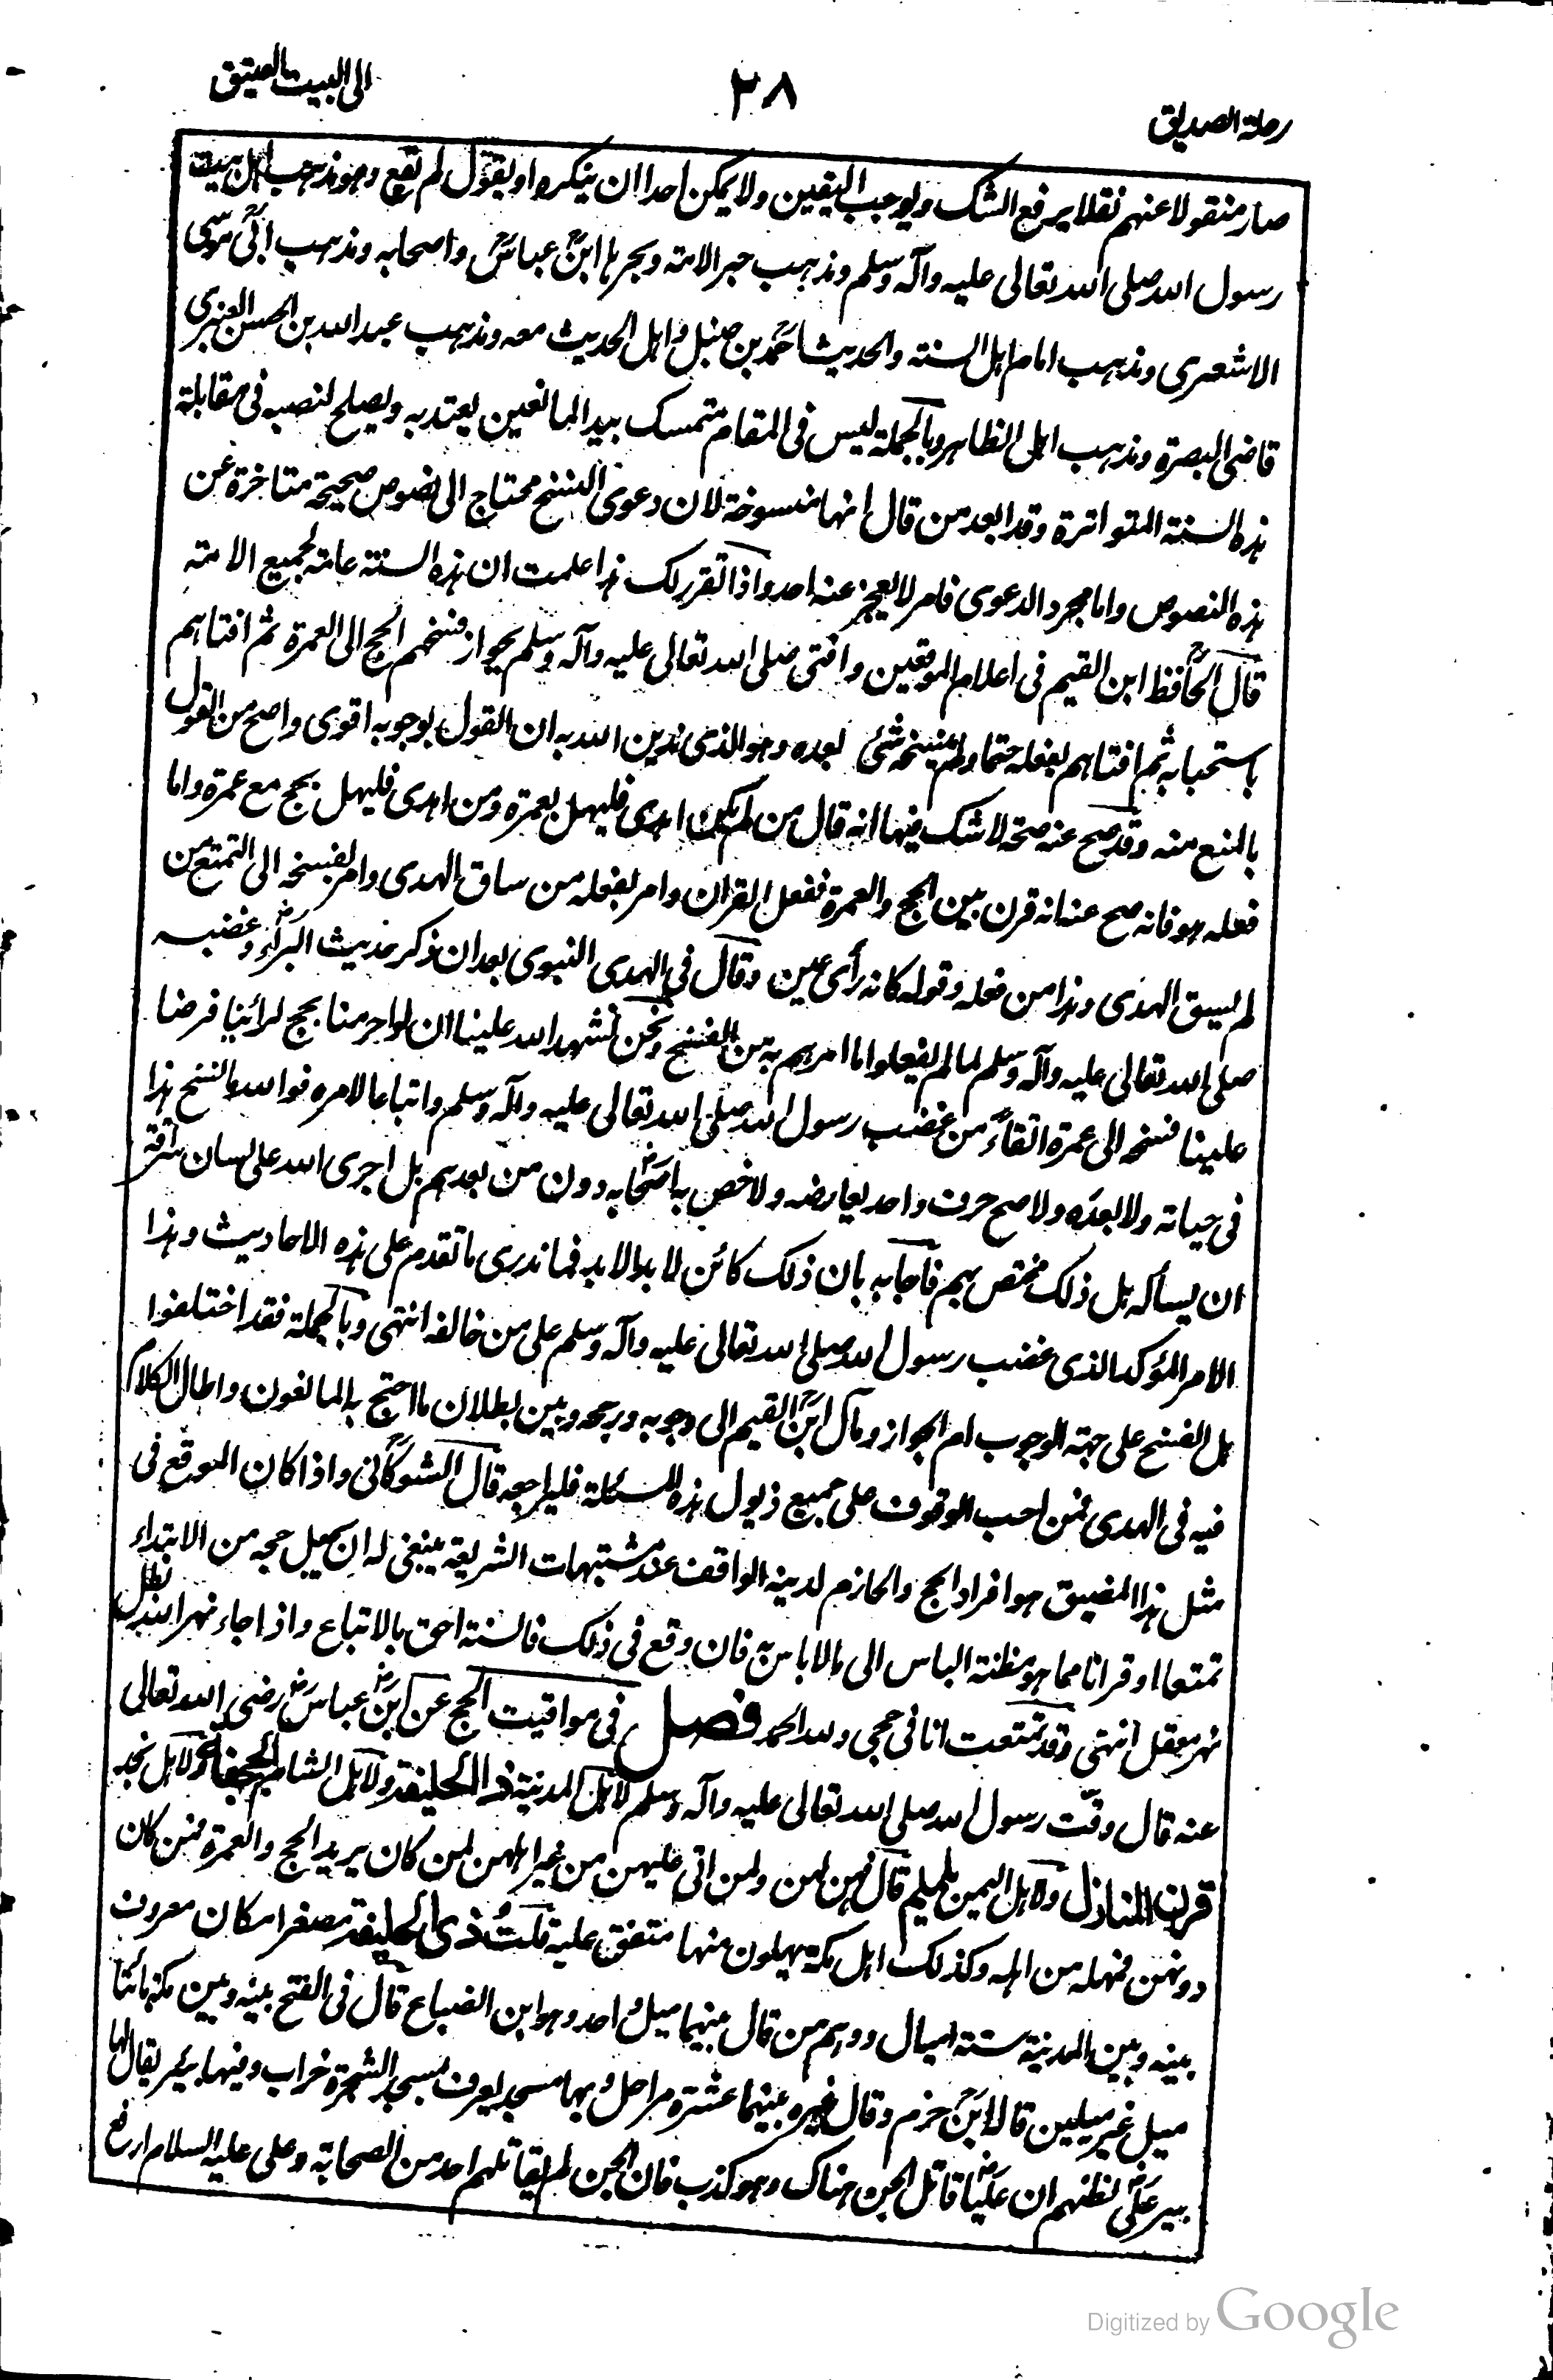 رحلة الصديق
٣٨
الى البيت العتيق
صار منقولا عنهم نقلا يرفع الشك ويوجب اليقين ولا يمكن احدا ان ينكره او يقول لم تقع وهو مذهب اهل بيت
رسول الله صلى الله تعالى عليه وآله وسلم ومذهب حبر الامة وبحرها ابن عباس واصحابه ومذهب ابى موسى
الاشعرى ومذهب امام اهل السنة والحديث احمد بن حنبل واهل الحديث معه ومذهب عبد الله بن الحسن العنبرى
قاضى البصرة ومذهب اهل الظاهر وبالجملة ليس فى المقام متمسك بيد المانعين يعتد به ويصلح لنصبه فى مقابلة
هذه السنة المتواترة وقد ابعد من قال انها منسوخة لان دعوى النسخ محتاج الى نصوص صحيحة متاخرة عن
هذه النصوص واما مجرد الدعوى فامر لا يعجز عنه احد واذا تقرر لك هذا علمت ان هذه السنة عامة لجميع الامة
قال الحافظ ابن القيم فى اعلام الموقعين وافتى صلى الله تعالى عليه وآله وسلم بجواز فسخهم الحج الى العمرة ثم افتاهم
باستحبابه ثم افتاهم بفعله حتما ولم ينسخه شئ بعده وهو الذى ندين الله به ان القول بوجوبه اقوى واصح من القول
بالمنع منه وقد صح عنه صحة لا شك فيها انه قال من لم يكن اهدى فليهل بعمرة ومن اهدى فليهل بحج مع عمرة واما
فعله هو فانه صح عنه انه قرن بين الحج والعمرة ففعل القران وامر بفعله من ساق الهدى وامر بفسخه الى التمتع من
لم يسق الهدى وهذا من فعله وقوله كانه رأى عين وقال فى الهدى النبوى بعد ان ذكر حديث البراء وغضبه
صلى الله تعالى عليه وآله وسلم لما لم يفعلوا ما امرهم به من الفسخ ونحن نشهد الله علينا ان لو احرمنا بحج لرأينا فرضا
علينا فسخه الى عمرة اتقاء من غضب رسول الله صلى الله تعالى عليه وآله وسلم واتباعا لامره فوالله ما نسخ هذا
فى حياته ولا بعده ولا صح حرف واحد يعارضه ولا خص به اصحابه دون من بعدهم بل اجرى الله على لسان سراقة
ان يسأله هل ذلك مختص بهم فاجابه بان ذلك كائن لابد الابد فما ندرى ما تقدم على هذه الاحاديث وهذا
الامر المؤكد الذى غضب رسول الله صلى الله تعالى عليه وآله وسلم على من خالفه انتهى وبالجملة فقد اختلفوا
هل الفسخ على جهة الوجوب ام الجواز ومال ابن القيم الى وجوبه ورجحه وبين بطلان ما احتج به المانعون واطال الكلام
فيه فى الهدى فمن احب الوقوف على جميع ذيول هذه المسئلة فليراجعه قال الشوكانى واذا كان الموقع فى
مثل هذا المضيق هو افراد الحج والحازم لدينه الواقف عند مشتبهات الشريعة ينبغى له ان يجعل حجه من الابتداء
تمتعا او قرانا مما هو مظنة الباس الى ما لا باس به فان وقع فى ذلك فالسنة احق بالاتباع واذا جاء نهر الله بطل
نهر معقل انتهى وقد تمتعت انا فى حجى ولله الحمد فصل فى مواقيت الحج عن ابن عباس رضى الله تعالى
عنه قال وقّت رسول الله صلى الله تعالى عليه وآله وسلم لاهل المدينة ذا الحليفة ولاهل الشام الجحفة ولاهل نجد
قرن المنازل ولاهل اليمن يلملم قال فهن لهن ولمن اتى عليهن من غير اهلهن لمن كان يريد الحج والعمرة فمن كان
دونهن فمهله من اهله وكذلك اهل مكة يهلون منها متفق عليه قلت ذى الحليفة مصغرا مكان معروف
بينه وبين المدينة ستة اميال ووهم من قال بينهما ميل واحد وهو ابن الصباغ قال فى الفتح بينه وبين مكة مائتا
ميل غير ميلين قاله ابن حزم وقال غيره بينهما عشرة مراحل وبها مسجد يعرف بمسجد الشجرة خراب وفيها بئر يقال لها
بير على لظنهم ان عليا قاتل الجن هناك وهو كذب فان الجن لم يقاتلهم احد من الصحابة وعلى عليه السلام ارفع
Digitized by Google